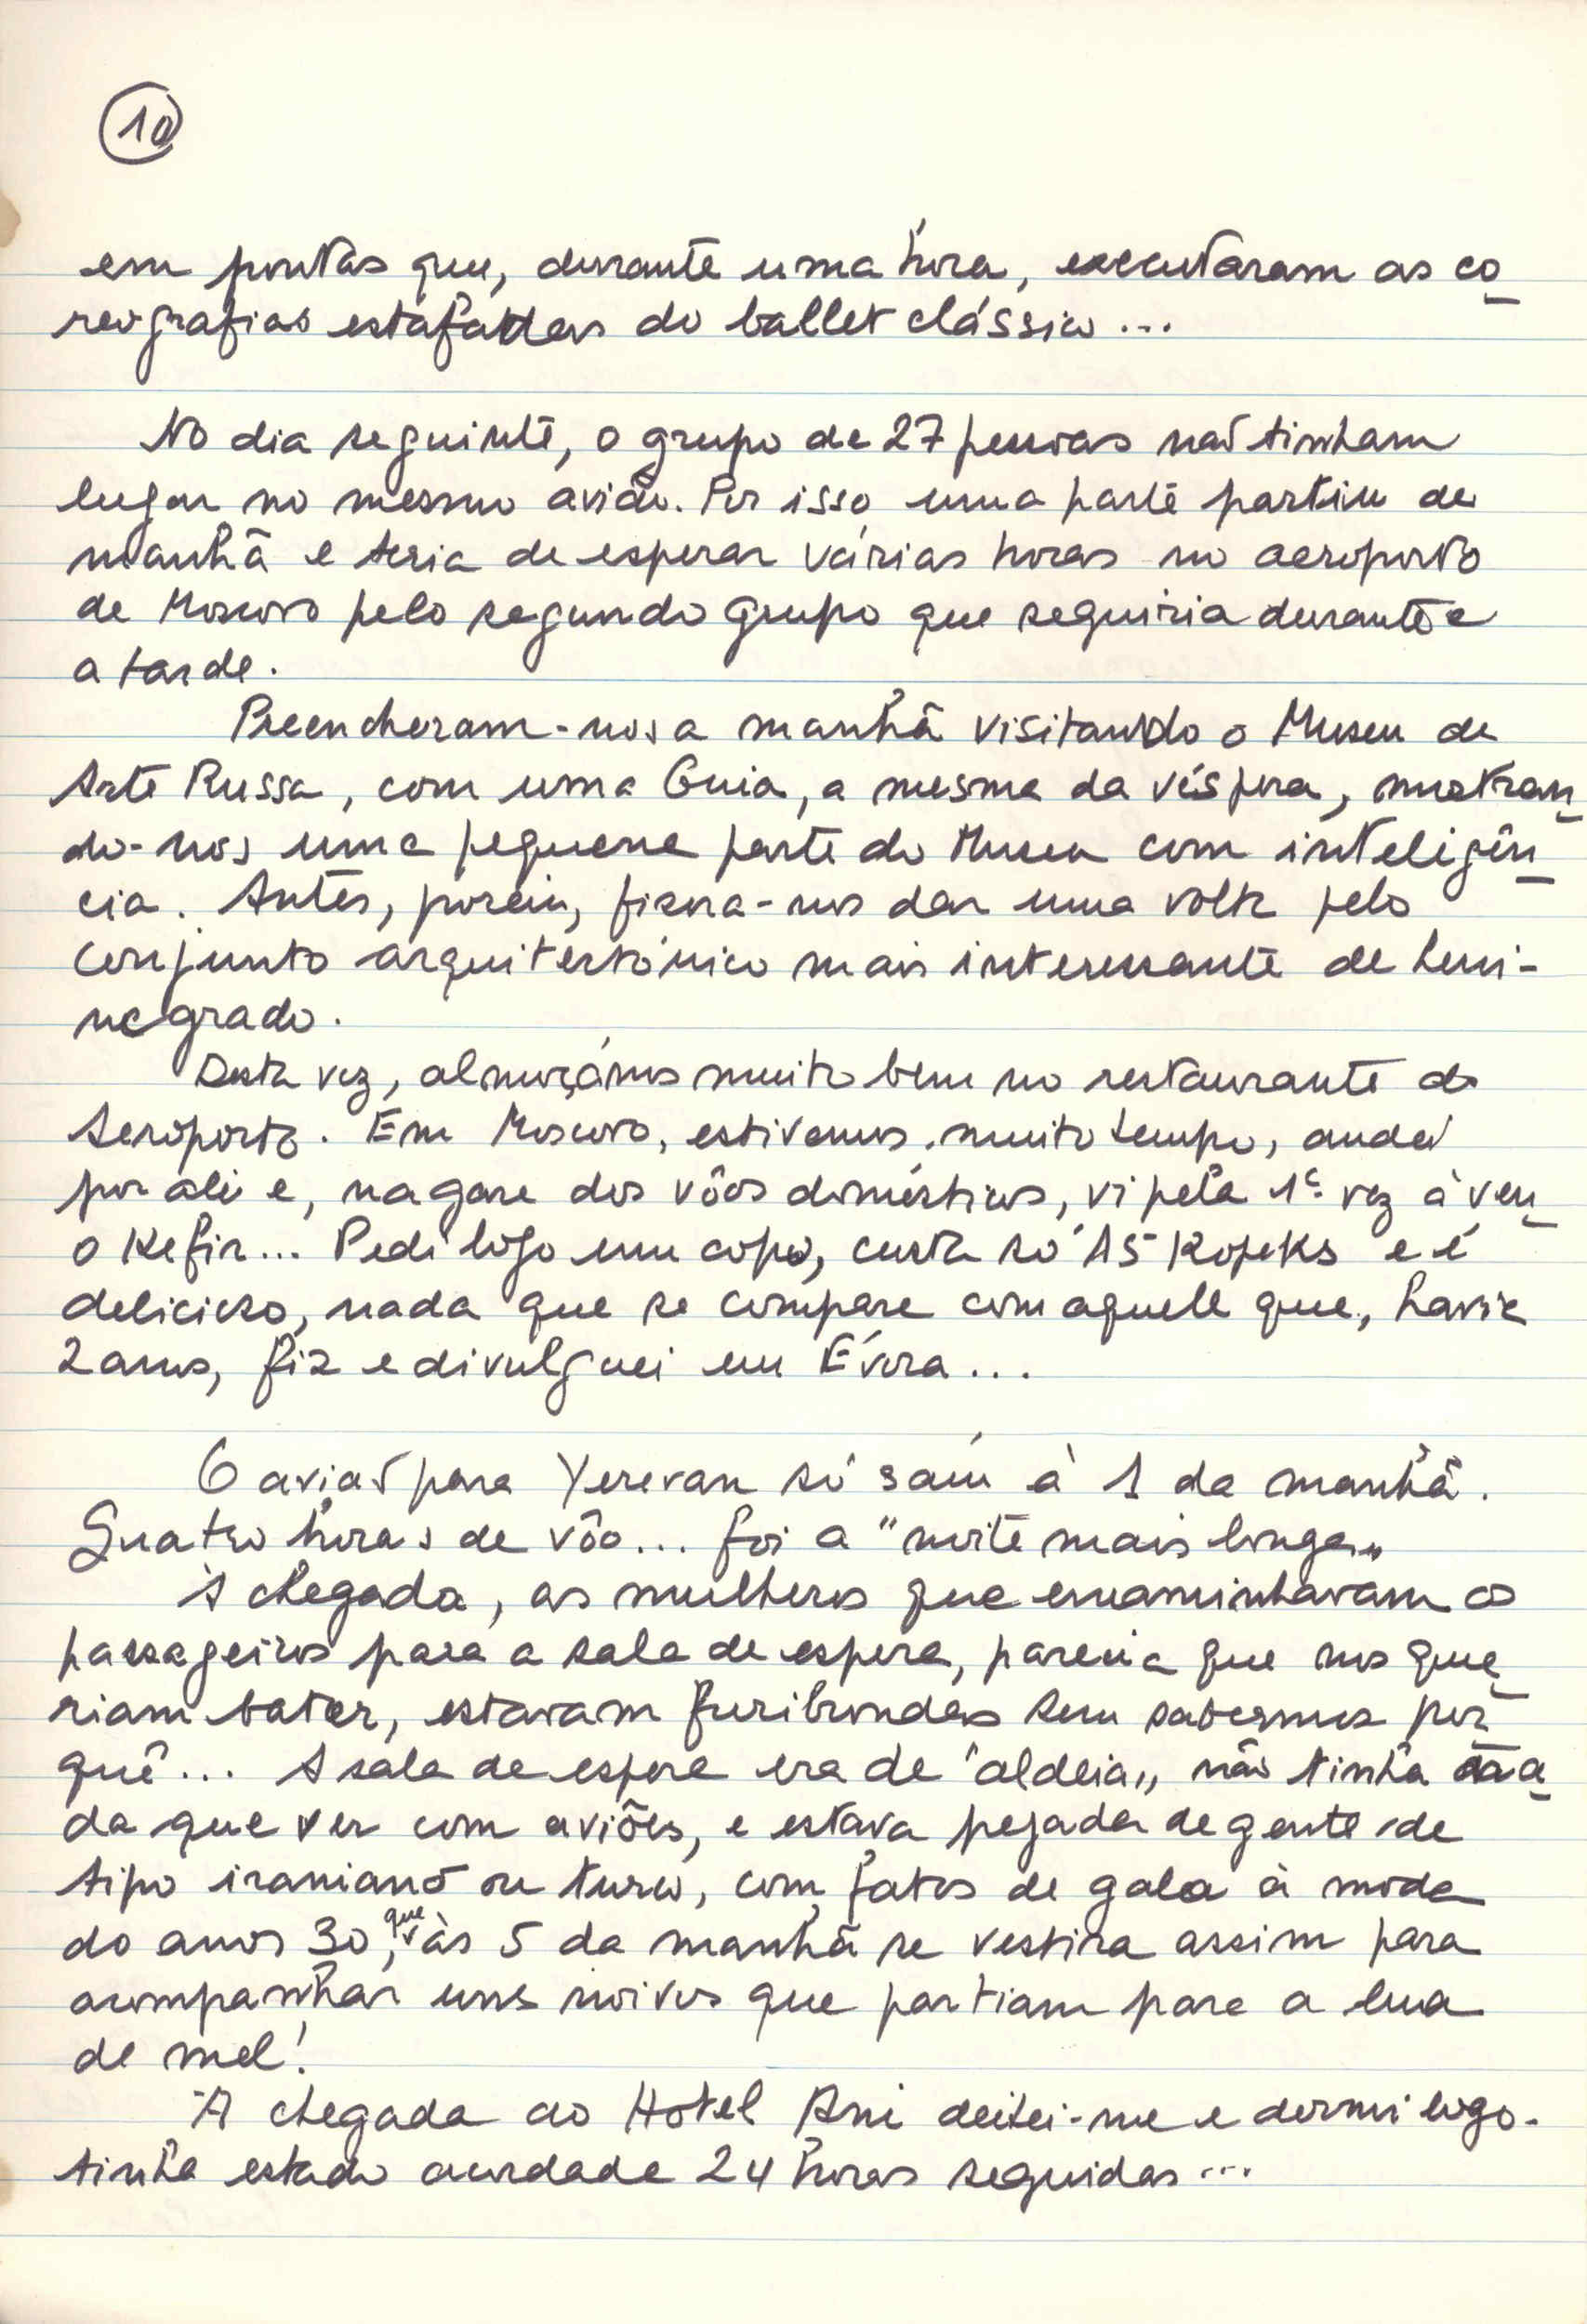 10
em pontas que, durante uma hora, executaram as co
reografias estafadas do ballet clássico...
No dia seguinte, o grupo de 27 pessoas não tinham
lugar no mesmo avião. Por isso uma parte partiu de
manhã e teria de esperar várias horas no aeroporto
de Moscovo pelo segundo grupo que seguiria durante
a tarde.
Preencheram-nos a manhã visitando o Museu de
Arte Russa, com uma Guia, a mesma da véspera, mostran
do-nos uma pequena parte do Museu com inteligên
cia. Antes, porém, fizera-nos dar uma volta pelo
conjunto arquitectónico mais interessante de Leni-
negrado.
Desta vez, almoçámos muito bem no restaurante do
Aeroporto. Em Moscovo, estivemos muito tempo, andei
por ali e, na gare dos vôos domésticos, vi pela 1ª vez à ven
o Kefir... Pedi logo um copo, custa só 15 Kopeks e é
delicioso, nada que se compare com aquele que, havia
2 anos, fiz e divulguei em Évora...
O avião para Yerevan só saíu à 1 da manhã.
Quatro horas de vôo... foi a "noite mais longa"
À chegada, as mulheres que encaminhavam os
passageiros para a sala de espera, parecia que nos que
riam bater, estavam furibundas sem sabermos por
quê... A sala de espera era de "aldeia", não tinha na
da que ver com aviões, e estava pejada de gente de
tipo iraniano ou turco, com fatos de gala à moda
do anos 30, que às 5 da manhã se vestira assim para
acompanhar uns noivos que partiam para a lua
de mel!
À chegada ao Hotel Ani deitei-me e dormi logo.
tinha estado acordada 24 horas seguidas...